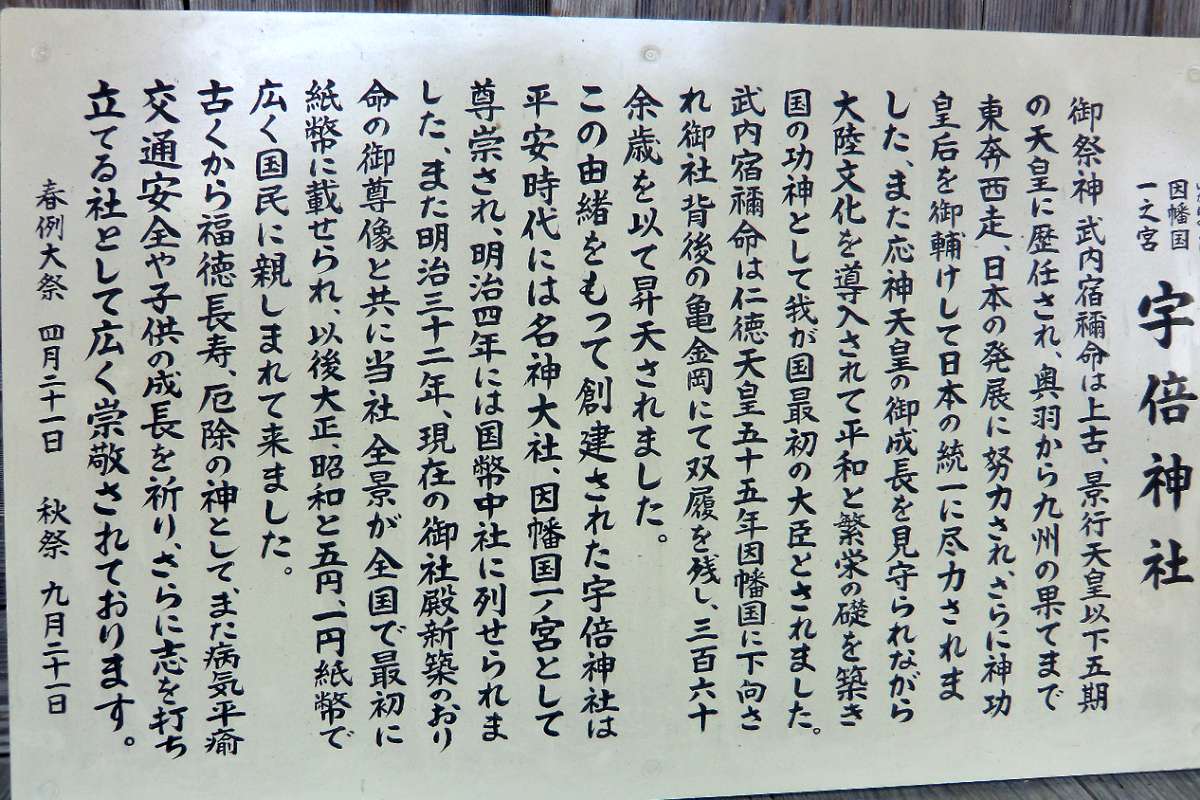 因幡国
一之宮
宇倍神社
御祭神 武内宿禰命は上古、景行天皇以下五期
の天皇に歴任され、奥羽から九州の果てまで
東奔西走、日本の発展に努力され、さらに神功
皇后を御輔けして日本の統一に尽力されま
した、また応神天皇の御成長を見守られながら
大陸文化を導入されて平和と繁栄の礎を築き
国の功神として我が国最初の大臣とされました。
武内宿禰命は仁徳天皇五十五年因幡国に下向さ
れ御社背後の亀金岡にて双履を残し、三百六十
余歳を以て昇天されました。
この由緒をもって創建された宇倍神社は
平安時代には名神大社、因幡国一ノ宮として
尊崇され、明治四年には国幣中社に列せられま
した、また明治三十二年、現在の御社殿新築のおり
命の御尊像と共に当社全景が全国で最初に
紙幣に載せられ、以後大正、昭和と五円、一円紙幣で
広く国民に親しまれて来ました。
古くから福徳長寿、厄除の神として、また病気平癒
交通安全や子供の成長を祈り、さらに志を打ち
立てる社として広く崇敬されております。
春例大祭 四月二十一日 秋祭 九月二十一日